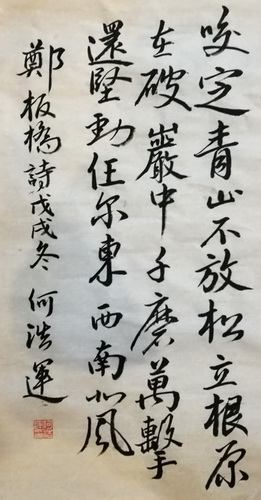 咬定青山不放松立根原
在破巖中千磨萬擊
還堅動任尔東西南北風
鄭板橋詩戊戌冬何浩運